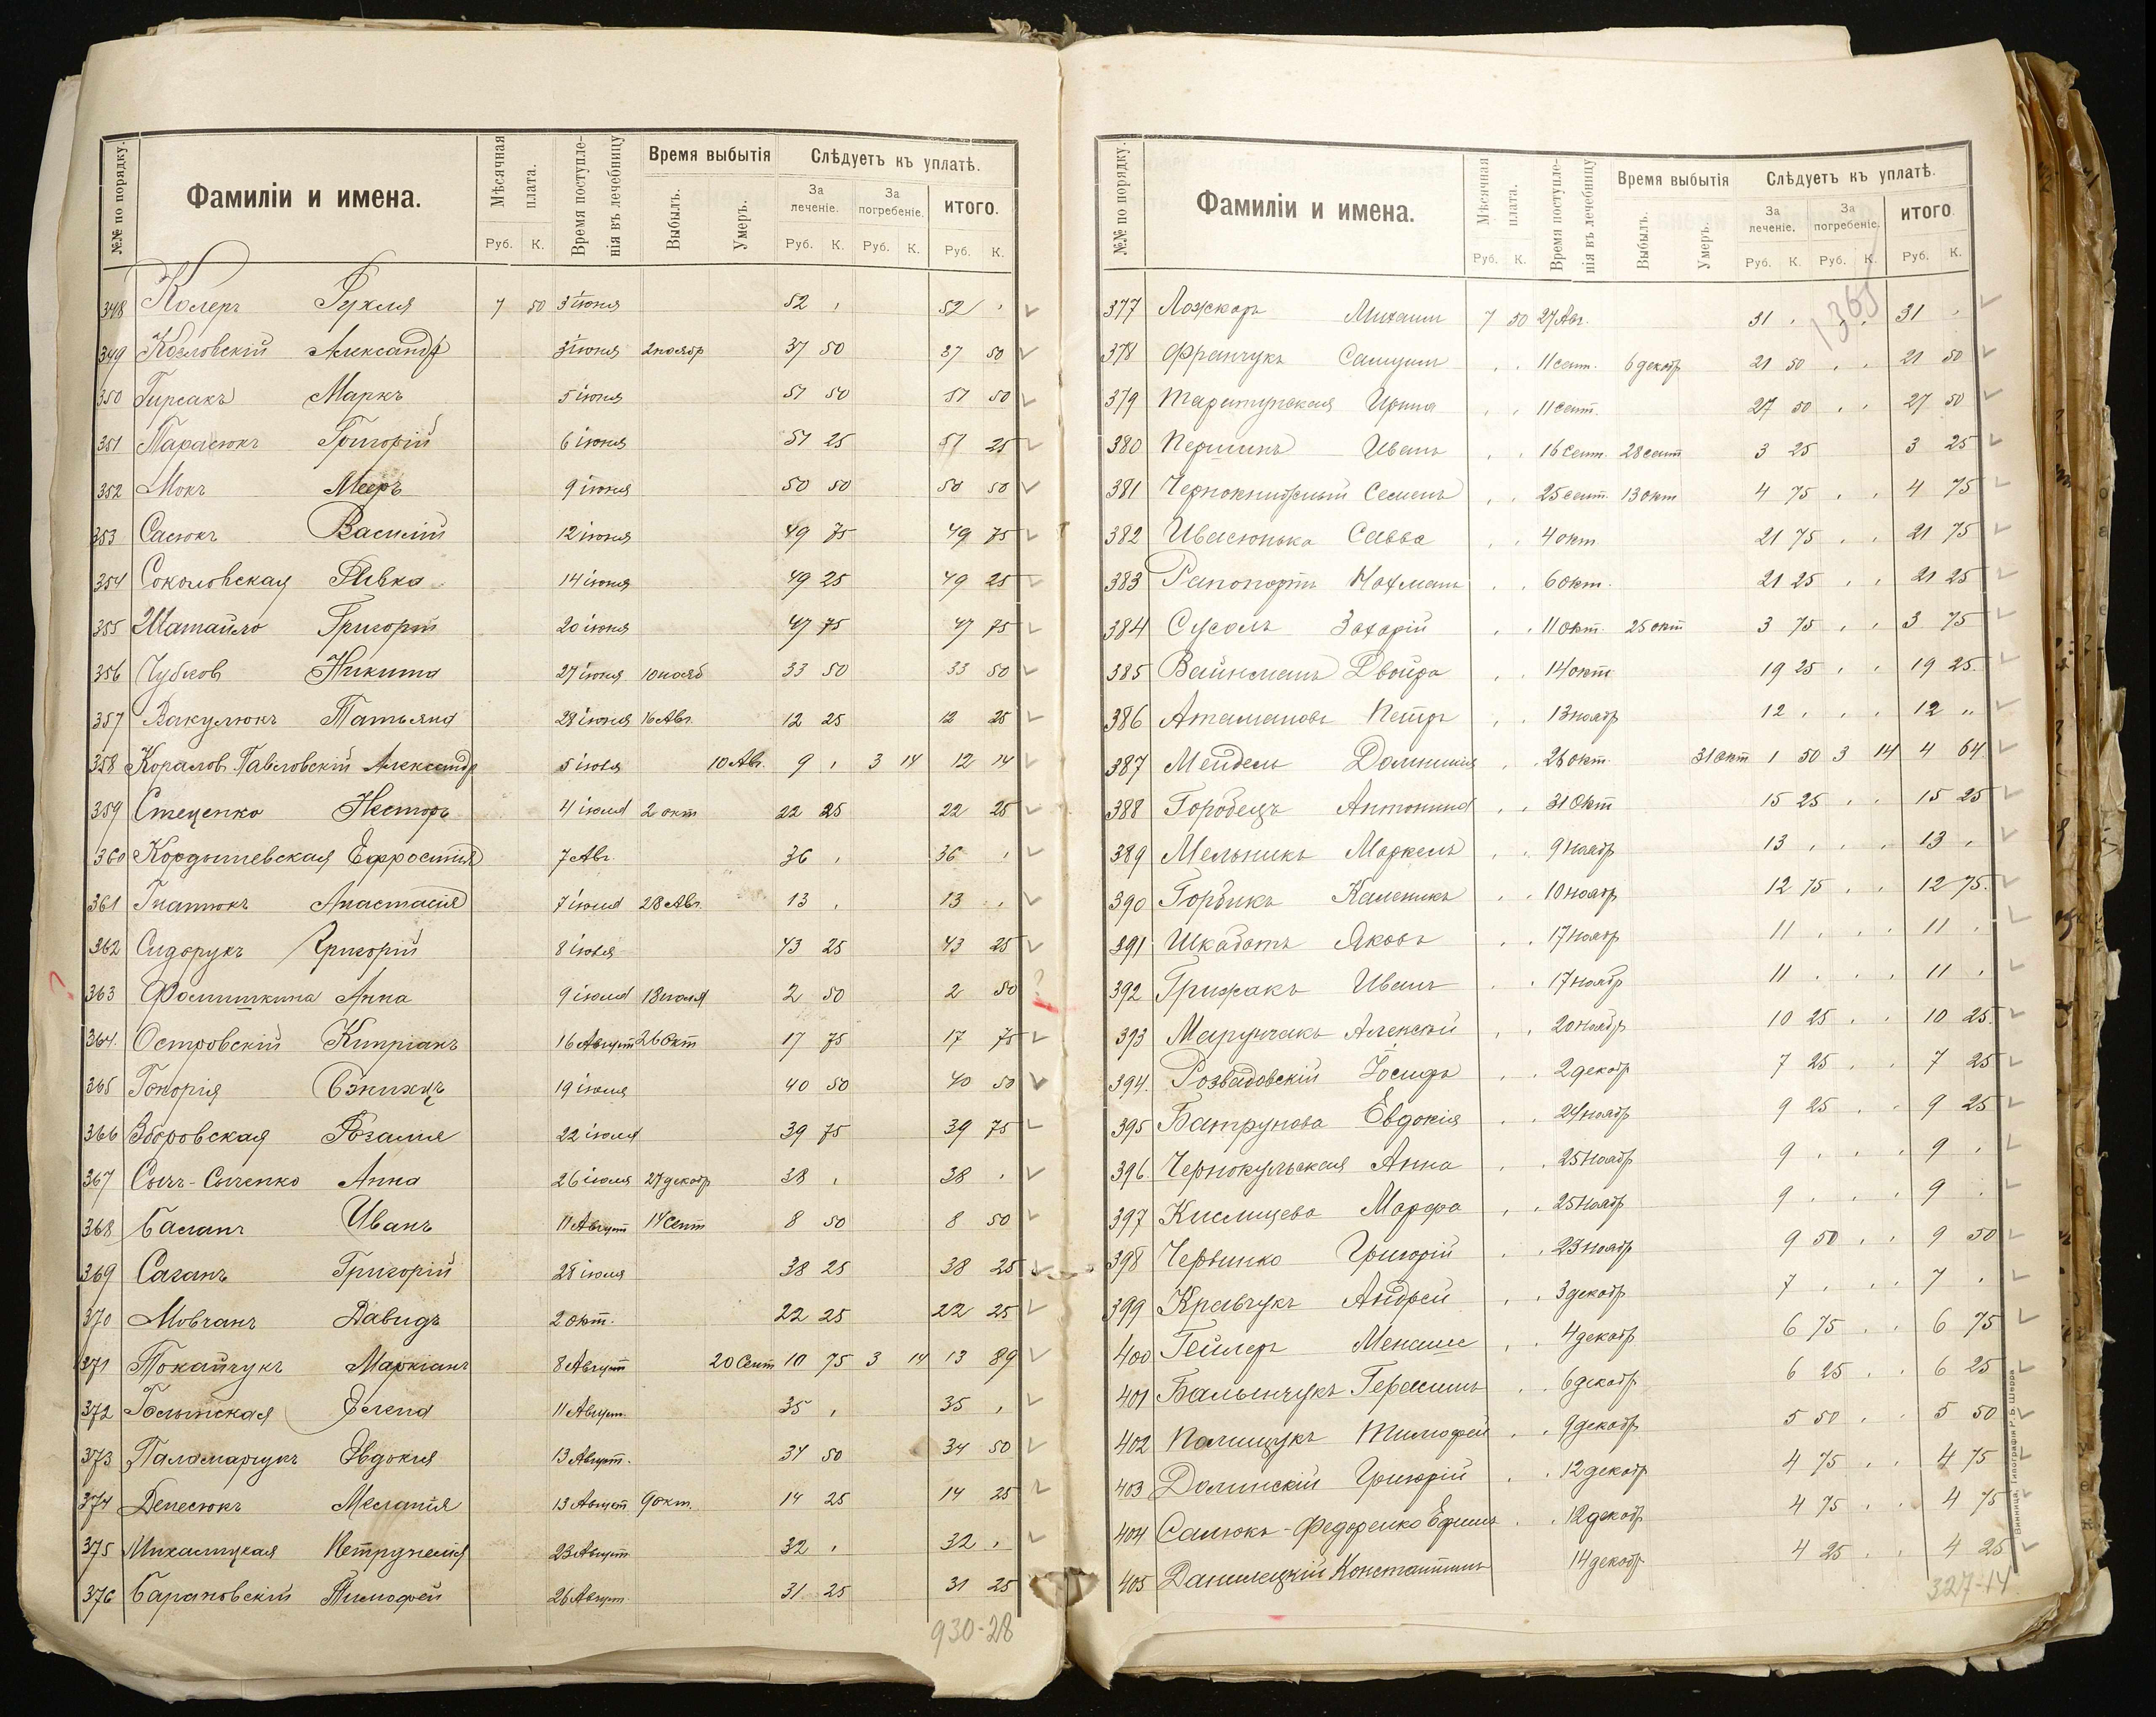 №№ по порядку. Фамиліи и имена. Мѣсячная плата. Время поступленія въ лечебницу Время выбытія Слѣдуетъ къ уплатѣ.
Выбылъ. Умеръ. За леченіе. За погребеніе. ИТОГО.
Руб. К. Руб. К. Руб. К. Руб. К.
348 Колеръ Рухля 7 50 3 іюня 52 , 52 ,
349 Козловскій Александр 3 іюня 2 ноябр 37 50 37 50
350 Гирсакъ Маркъ 5 іюня 51 50 51 50
351 Парасюкъ Григорій 6 іюня 51 25 51 25
352 Мокъ Мееръ 9 іюня 50 50 50 50
353 Сасюкъ Василій 12 іюня 49 75 49 75
354 Соколовская Ривка 14 іюня 49 25 49 25
355 Шатайло Григорій 20 іюня 47 75 47 75
356 Чубков Никита 27 іюня 10 нояб 33 50 33 50
357 Вакулюкъ Татьяна 28 іюня 16 Авг. 12 25 12 25
358 Коралов. Павловскій Александр 5 іюля 10 Авг. 9 , 3 14 12 14
359 Стеценко Несторъ 4 іюля 2 окт 22 25 22 25
360 Кордышевская Ефросинія 7 Авг 36 , 36 ,
361 Гнатюкъ Анастасія 7 іюля 28 Авг. 13 , 13 ,
362 Сидорукъ Григорій 8 іюля 43 25 43 25
? 363 Фомишкина Анна 9 іюля 18 іюля 2 50 2 50 ?
364. Островскій Кипріанъ 16 Август 26 Окт 17 75 17 75
365 Гонорія 19 іюля 40 50 40 50
366 Зборовская Розалія 22 іюля 39 75 39 75
367 Сычъ-Сыченко Анна 26 іюля 27 декабр 38 , 38 ,
368 Баланъ Иванъ 11 Август 14 Сент 8 50 8 50
369 Саганъ Григорій 28 іюля 38 25 38 25
370 Мовчанъ Давидъ 2 окт. 22 25 22 25
371 Токайчукъ Маркіанъ 8 Август 20 Сент 10 75 3 14 13 89
372 Голынская Елена 11 Август. 35 , 35 ,
373 Паламарчукъ Евдокия 13 Август. 34 50 34 50
374 Денесюкъ Меланія 13 Август 9 окт. 14 25 14 25
375 Михалицкая Петрунелія 23 Август 32 , 32 ,
376 Барановскій Тимофей 26 Август. 31 25 31 25
930-28
№№ по порядку. Фамиліи и имена. Мѣсячная плата. Время поступленія въ лечебницу Время выбытія Слѣдуетъ къ уплатѣ.
Выбылъ. Умеръ. За леченіе. За погребеніе. ИТОГО.
Руб. К. Руб. К. Руб. К. Руб. К.
1365
377 Ложкарь Михаилъ 7 50 27 Авг. 31 . . . 31 .
378 Франчукъ Самуилъ . . 11 сент. 6 декабр 21 50 . . 21 50
379 Таратунская Ирина . . 11 сент. 27 50 . . 27 50
380 Першинъ Иванъ . . 16 Сент. 28 сент 3 25 3 25
381 Чернокнижный Семенъ . . 25 сент. 13 окт 4 75 . . 4 75
382 Ивасюнька Савва . . 4 окт 21 75 . . 21 75
383 Рапопортъ Нахманъ . . 6 окт. 21 25 . . 21 25
384 Сусолъ Захарій . . 11 окт. 25 окт 3 75 . . 3 75
385 Вайнманъ Двойра . . 14 окт 19 25 . . 19 25
386 Атамановъ Петръ . . 13 ноябр 12 . . . 12 „
387 Мендель Домникія . . 26 окт. 31 окт 1 50 3 14 4 64
388 Городецъ Антонина . . 31 Окт 15 25 . . 15 25
389 Мельникъ Маркелъ . . 9 ноябр 13 . . . 13 .
390 Горбикъ Каленикъ . . 10 ноябр 12 75 . . 12 75.
391 Шкабатъ Яковъ . . 17 ноябр 11 . . . 11 .
392 Грижакъ Иванъ . . 17 ноябр 11 . . . 11 .
393 Марунчакъ Алексѣй . . 20 ноябр 10 25 . . 10 25.
394. Розвадовскій Іосифъ . . 2 декабр 7 25 . . 7 25
395 Батрунова Евдокія . . 24 ноябр 9 25 . . 9 25
396 Чернокульская Анна . . 25 Ноябр 9 . . . 9 .
397 Кислицева Марфа . . 25 Ноябр 9 . . . 9 .
398 Червинко Григорій . . 23 ноябр 9 50 . . 9 50
399 Кравчукъ Андрей . . 3 декабр 7 . . . 7 .
400 Гейлеръ Менаше . . 4 декабр 6 75 . . 6 75
401 Бальинчукъ Герасимъ . . 6 декабр 6 25 . . 6 25
402 Полищукъ Тимофей . . 9 декабр 5 50 . . 5 50
403 Долинскій Григорій . . 12 декабр 4 75 . . 4 75
404 Салюкъ-Федоренко Ефимъ . . 12 декабр 4 75 . . 4 75
405 Данилецкій Константинъ 14 декабр 4 25 . . 4 25
327-14
Винница, Типографія Р. Б. Шерра